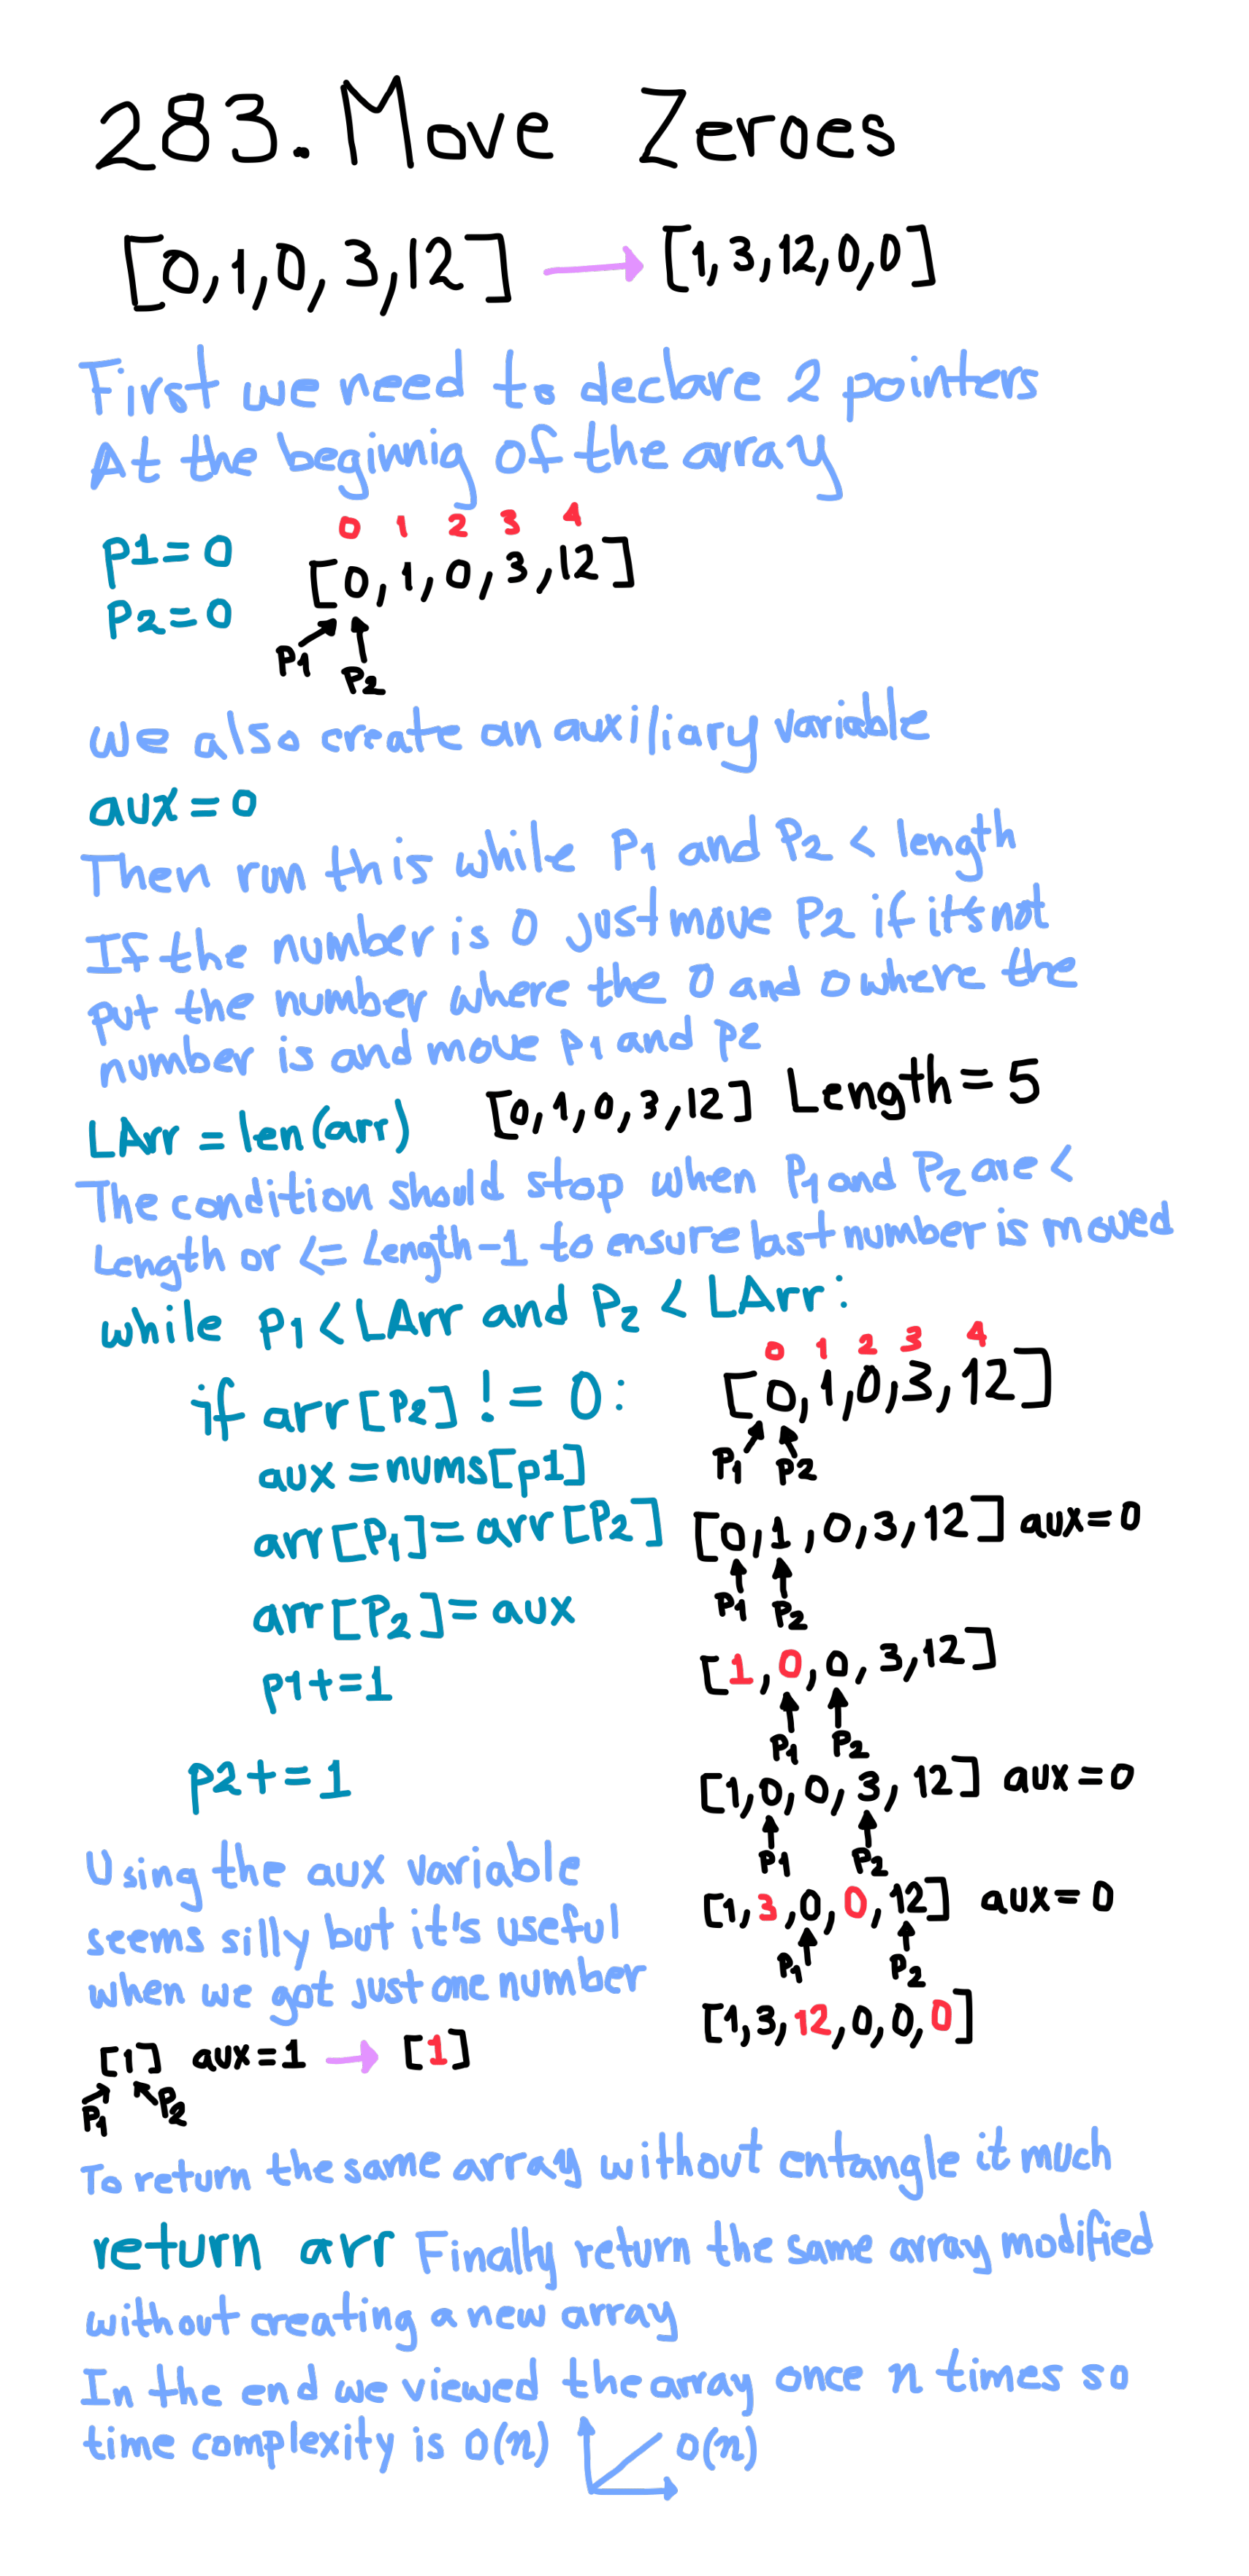 283. Move Zeroes
[0,1,0,3,12] → [1,3,12,0,0]
First we need to declare 2 pointers
At the beginnig of the array
p1=0
P2=0
0 1 2 3 4
[0,1,0,3,12]
P1 P2
we also create an auxiliary variable
aux=0
Then run this while P1 and P2 < length
If the number is 0 just move P2 if it's not
put the number where the 0 and 0 where the
number is and move p1 and p2
LArr = len(arr)
[0,1,0,3,12] Length=5
The condition should stop when P1 and P2 are <
Length or <= Length-1 to ensure last number is moved
while P1 < LArr and P2 < LArr:
if arr[P2] != 0:
aux = nums[p1]
arr[P1]=arr[P2]
arr[P2]=aux
p1+=1
p2+=1
0 1 2 3 4
[0,1,0,3,12]
P1 P2
[0,1,0,3,12] aux=0
P1 P2
[1,0,0,3,12]
P1 P2
[1,0,0,3,12] aux=0
P1 P2
[1,3,0,0,12] aux=0
P1 P2
[1,3,12,0,0,0]
Using the aux variable
seems silly but it's useful
when we got just one number
[1] aux=1 → [1]
P1 P2
To return the same array without entangle it much
return arr Finally return the same array modified
without creating a new array
In the end we viewed the array once n times so
time complexity is O(n)
O(n)